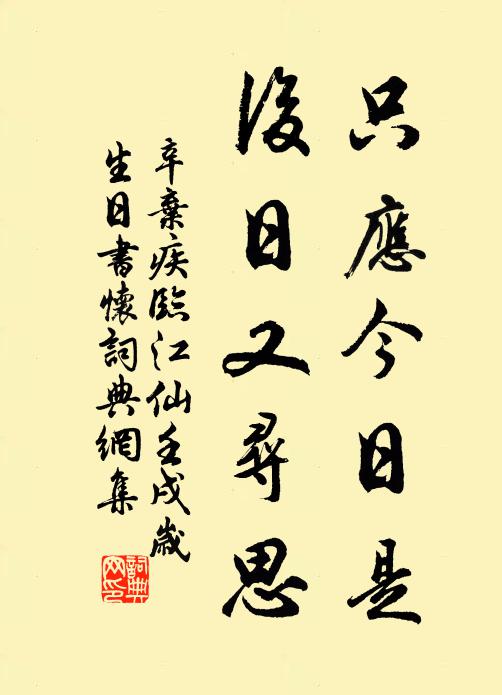 只應今日是
後日又尋思
辛棄疾臨江仙壬戌歲
生日書懷詞典網集
詞典
网印